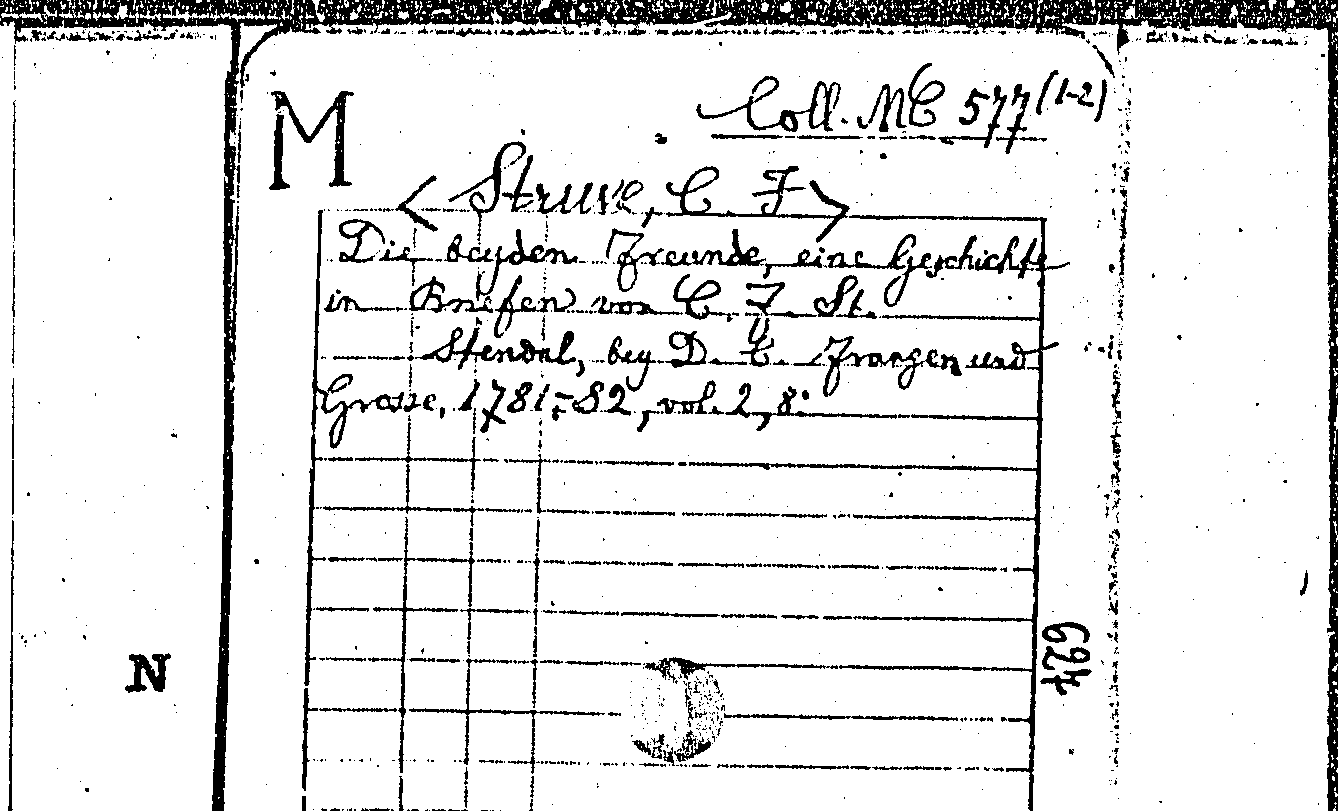 M
Coll. MC 577 (1-2)
< Struve, C. F >
Die beyden Freunde, eine Geschichte
in Briefen von C. F. St.
Stendal, bey D. C. Franzen und
Grosse, 1781-82, vol. 2, 8°
N